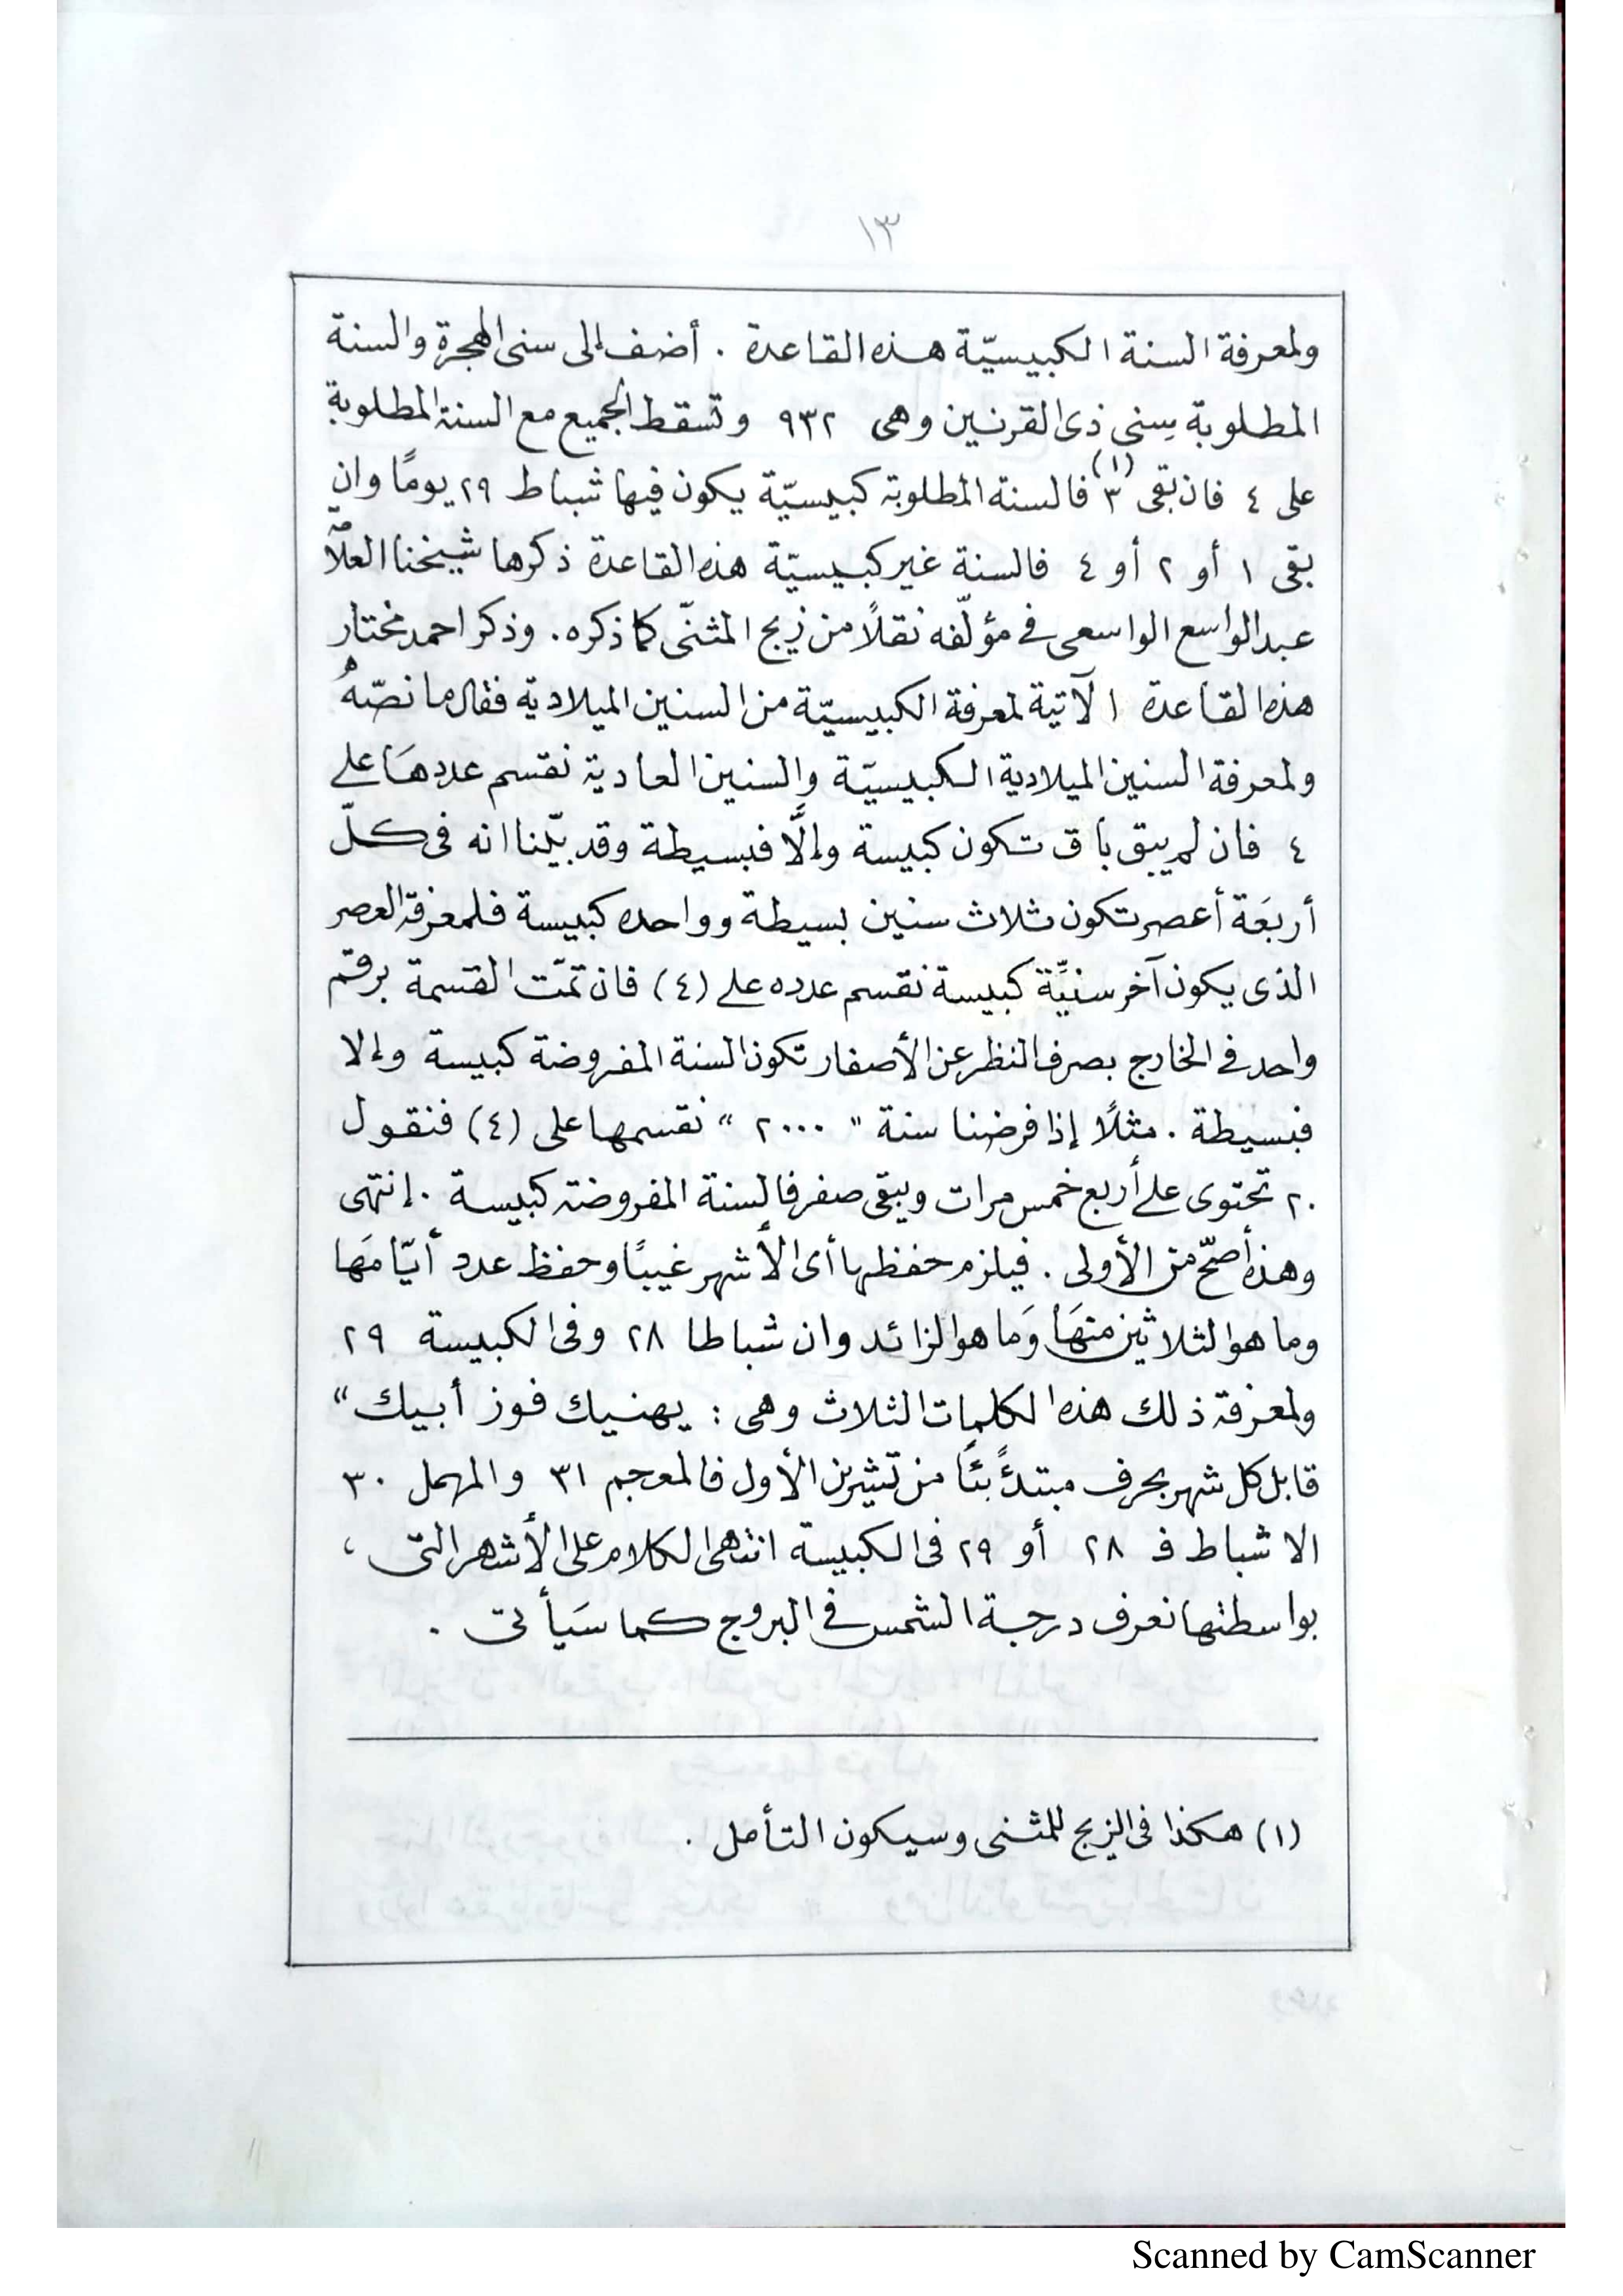 ١٣
ولمعرفة السنة الكبيسيّة هذه القاعدة . أضف إلى سنى الهجرة والسنة
المطلوبة سِنى ذى القرنين وهى ٩٣٢ وتسقط الجميع مع السنة المطلوبة
على ٤ فان بقى ٣ (١) فالسنة المطلوبة كبيسيّة يكون فيها شباط ٢٩ يومًا وان
بقى ١ أو ٢ أو ٤ فالسنة غير كبيسيّة هذه القاعدة ذكرها شيخنا العلاّمة
عبد الواسع الواسعى فى مؤلّفه نقلاً من زيج المثنّى كما ذكره . وذكر احمد مختار
هذه القاعدة الآتية لمعرفة الكبيسيّة من السنين الميلادية فقال ما نصّهُ
ولمعرفة السنين الميلادية الكبيسيّة والسنين العادية نقسم عددهَا على
٤ فان لم يبق باق تكون كبيسة وإلَّا فبسيطة وقد بيّنا انه فى كلّ
أربعَة أعصر تكون ثلاث سنين بسيطة وواحده كبيسة فلمعرفة العصر
الذى يكون آخر سنيِّة كبيسة نقسم عدده على (٤) فان تمّت القسمة برقم
واحد فى الخارج بصرف النظر عن الأصفار تكون السنة المفروضة كبيسة وإلا
فبسيطة . مثلًا إذا فرضنا سنة " ٢٠٠٠ " نقسمها على (٤) فنقول
٢٠ تحتوى على أربع خمس مرات ويبقى صفر فالسنة المفروضة كبيسة . إنتهى
وهذه أصحّ من الأولى . فيلزم حفظها أى الأشهر غيبًا وحفظ عدد أيّامَها
وما هو الثلاثين منهَا وَما هو الزائد وان شباطا ٢٨ وفى الكبيسة ٢٩
ولمعرفة ذلك هذه الكلمات الثلاث وهى : يهنيك فوز أبيك "
قابل كل شهر بحرف مبتدئًا من تشرين الأول فالمعجم ٣١ والمهمل ٣٠
الا شباط فـ ٢٨ أو ٢٩ فى الكبيسة انتهى الكلام على الأشهر التى ،
بواسطتها نعرف درجة الشمس فى البروج كما سَيأتى .
(١) هكذا فى الزيج للمثنى وسيكون التأمل .
Scanned by CamScanner